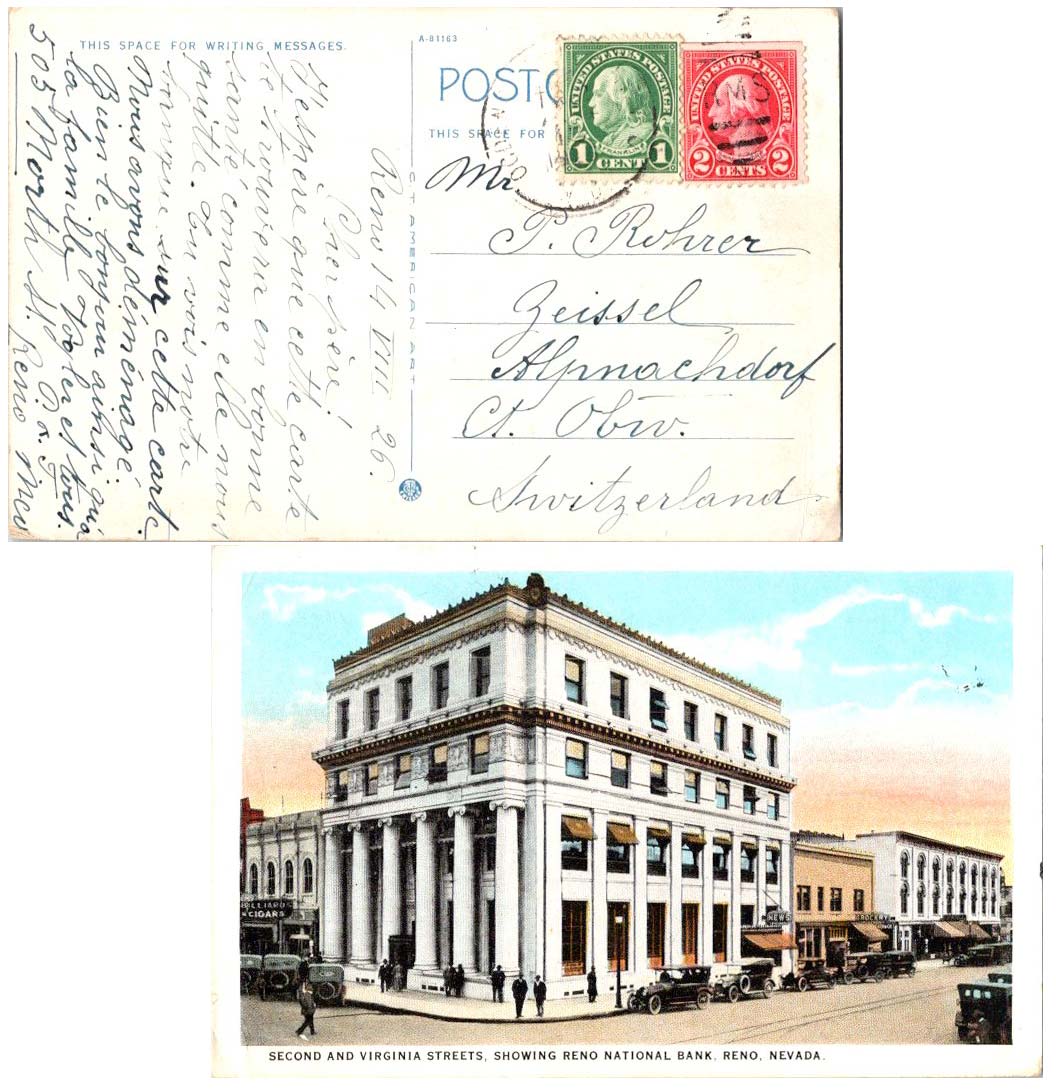 THIS SPACE FOR WRITING MESSAGES.
Reno 14 VIII 26.
Cher père!
J'espère que cette carte
te trouvera en bonne
santé, comme elle nous
quitte. Tu vois notre
banque sur cette carte.
Nous avons déménagé.
Bien le bonjour ainsi qu'à
la famille Vogler et tous.
505 North St. Reno Nev
A-81163
POSTC
THIS SPACE FOR
C.T. AMERICAN ART
UNITED STATES POSTAGE
FRANKLIN
1 CENT 1
UNITED STATES POSTAGE
2 CENTS 2
Mr
P. Rohrer
Zeissel
Alpnachdorf
Ct. Obw.
Switzerland
BILLIARDS
CIGARS
NEWS
GROCERY
SECOND AND VIRGINIA STREETS, SHOWING RENO NATIONAL BANK, RENO, NEVADA.